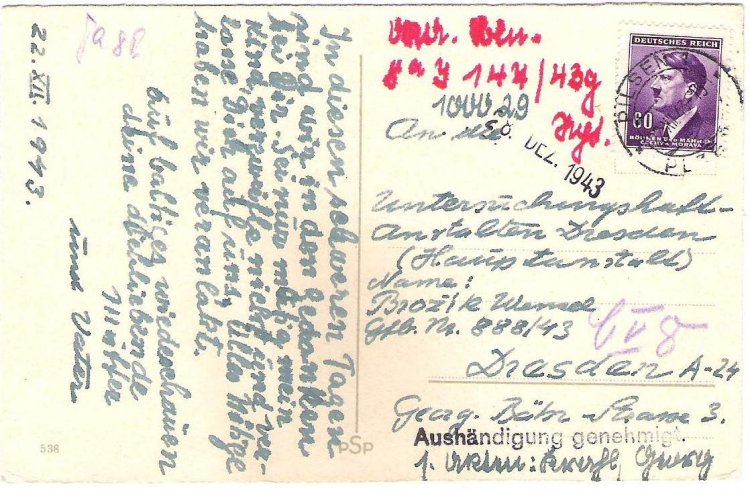 22. XII. 1943.
In diesen schweren Tagen
sind wir in den Gedanken
bei dir. Sei nur mutig mein
Kind, verzweifle nicht und ver-
lasse dich auf uns. Alles Nötige
haben wir veranlaßt.
Auf baldiges wiederschauen
deine dich liebende
Mutter
und Vater
538
PSP
J 147/43g
1000 29
DEUTSCHES REICH
60
BÖHMEN UND MÄHREN
ČECHY A MORAVA
PILSEN
28. DEZ. 1943
An die
Untersuchungshaft-
Anstalten Dresden
(Hauptanstalt)
Name:
Brožík Wenzel
Gfb. Nr. 888/43
Dresden A-24
Georg. Bähr-Strasse 3.
Aushändigung genehmigt.
Georg